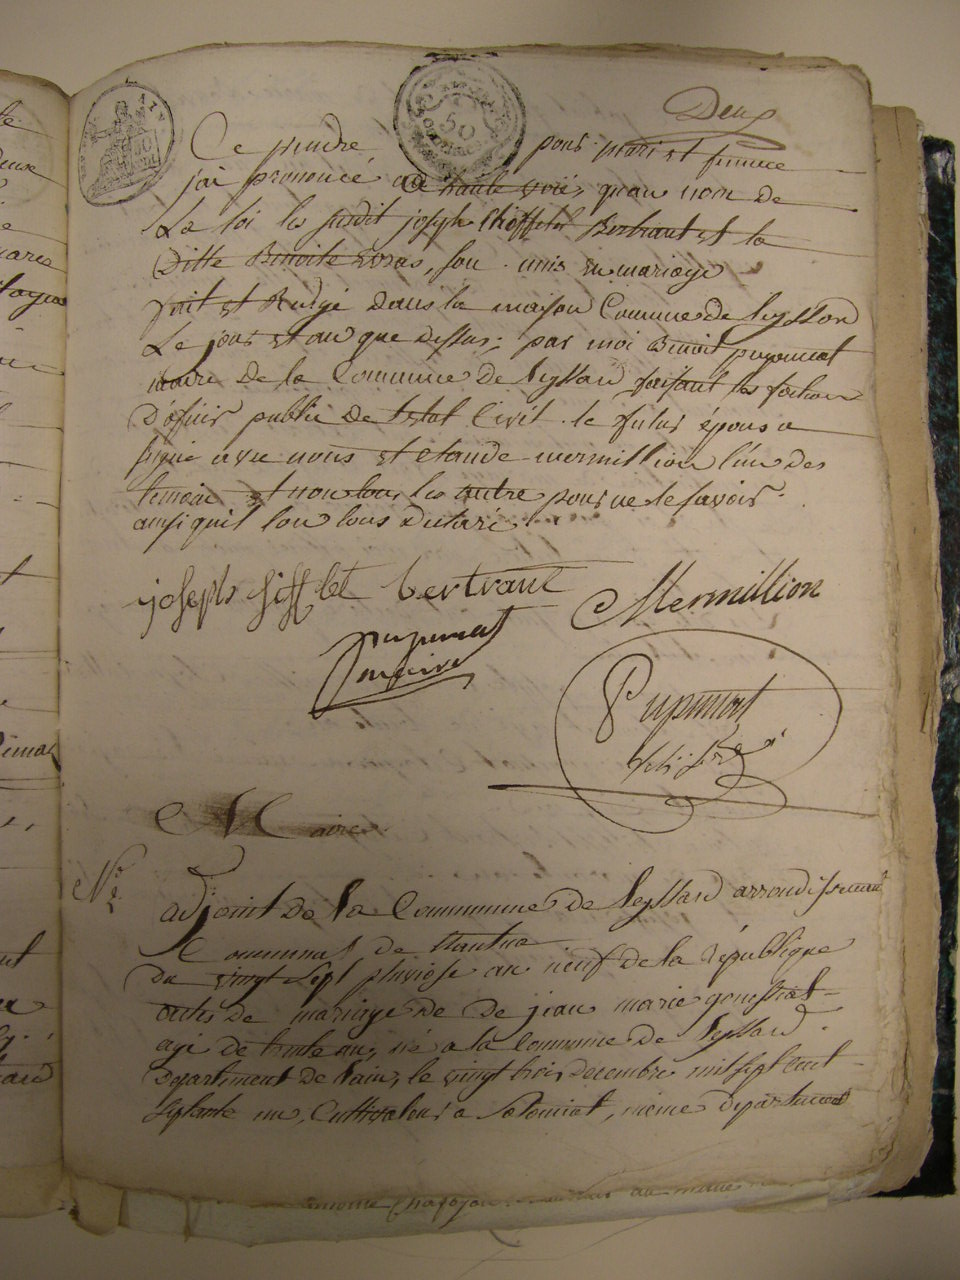 Deux
AIN
50
50
Ce prendre pour mari et femme
j'ai prononcé a haute voix, quau nom de
La loi les susdit joseph Chiffelet Bertrant et la
Ditte Benoite Gras, son unis en mariage
fait et Redigé dans la maison Commune de leyssard
Le jour et an que dessus; par moi Benoit pupunat
maire De la Commune De leyssard faisant les fontion
D'oficier public De l'etat Civil. le futur époux a
signé avec nous et claude mermillion l'un des
temoin et non tous les autre pour ne le savoir
ainsi quil l'on tous Declaré.
joseph sifflet bertrant
Mermillion
pupunat
maire
Pupunat
Maire
N.º 2
adjoint De la Commune de leyssard arrondissement
Communal de Nantua
Du vingt sept pluviose an neuf de la république
actes de mariage de De jean marie
agé de trente ans, né a la Commune De leyssard
Département de l'ain, le vingt trois Decembre mil sept cent
septante un, Cultivateur a Solomiat, même département